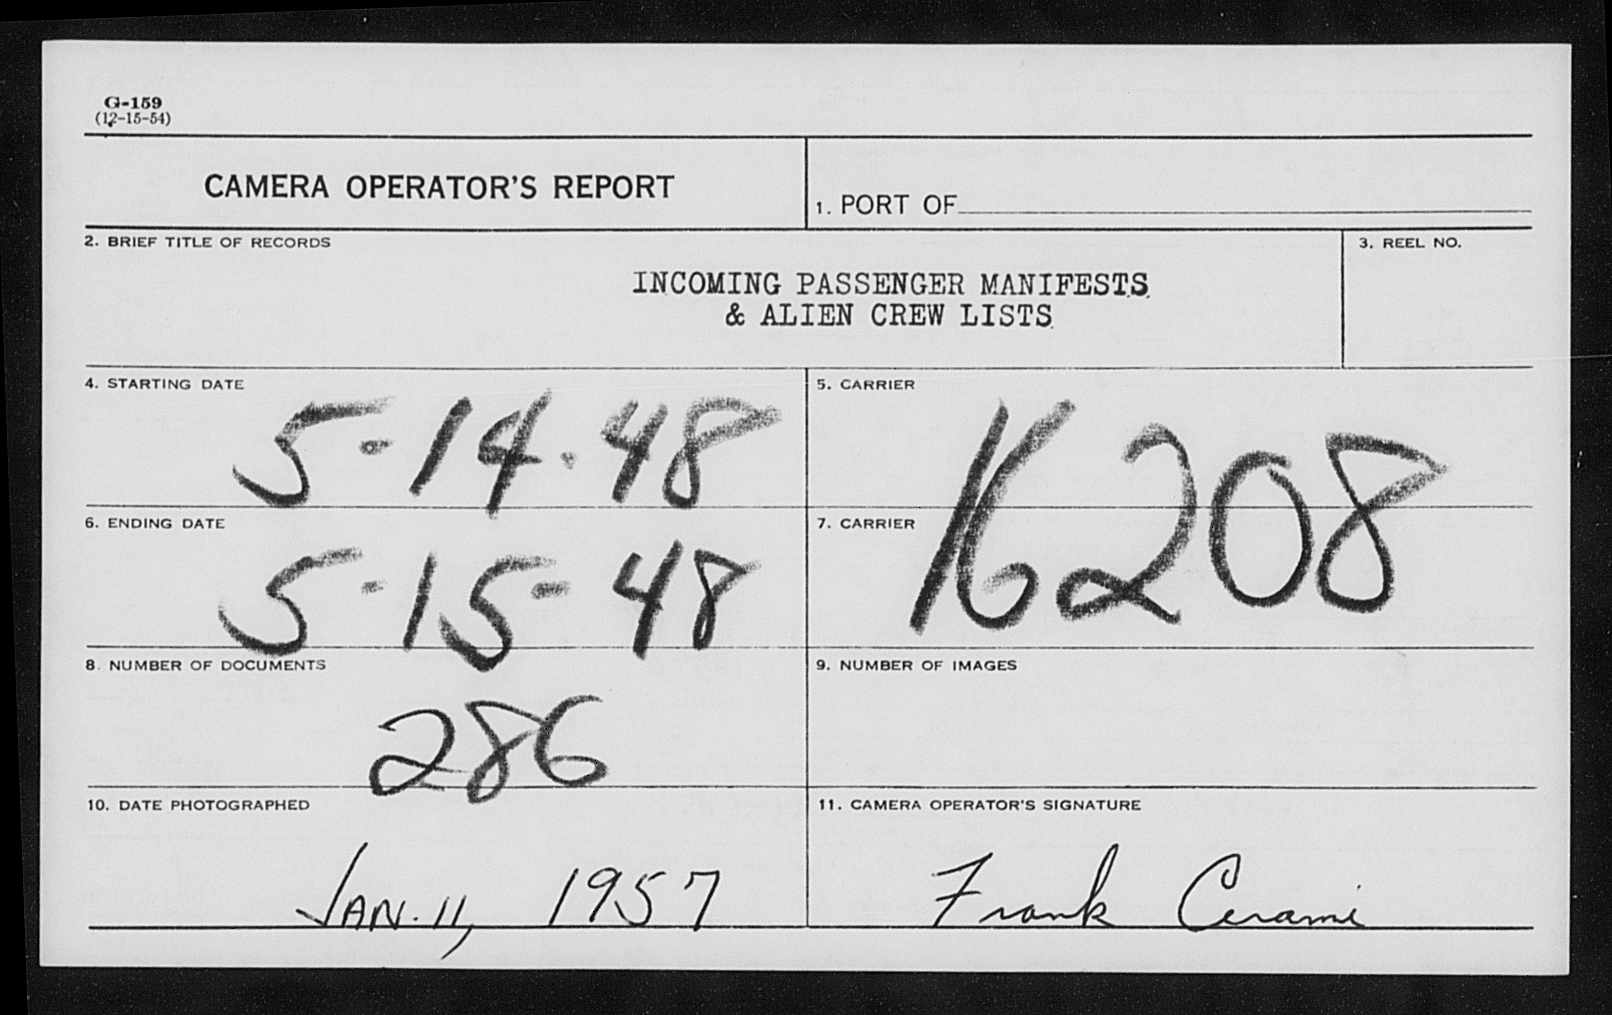 G-159
(12-15-54)
CAMERA OPERATOR'S REPORT
1. PORT OF
2. BRIEF TITLE OF RECORDS
3. REEL NO.
INCOMING PASSENGER MANIFESTS
& ALIEN CREW LISTS
4. STARTING DATE
5-14-48
5. CARRIER
16208
6. ENDING DATE
5-15-48
7. CARRIER
8. NUMBER OF DOCUMENTS
286
9. NUMBER OF IMAGES
10. DATE PHOTOGRAPHED
JAN. 11, 1957
11. CAMERA OPERATOR'S SIGNATURE
Frank Cerami